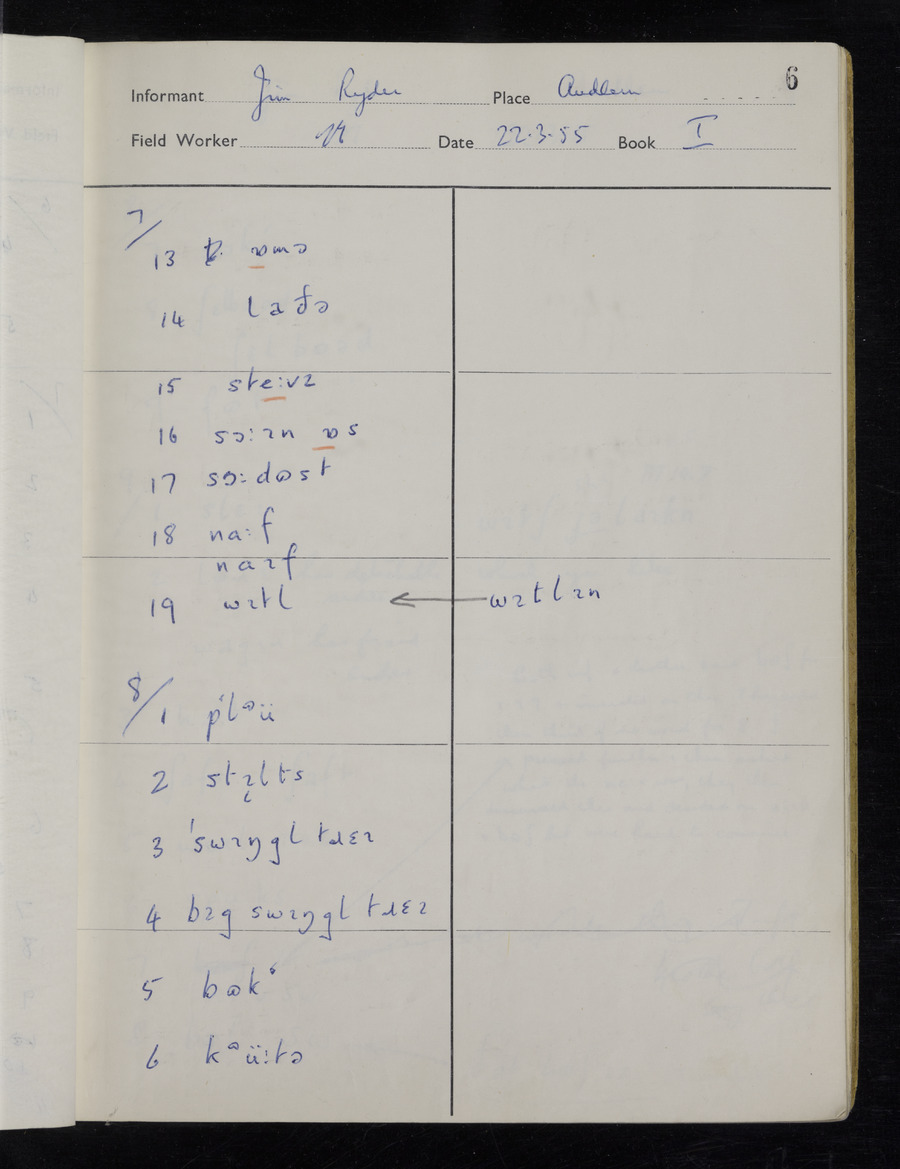 6
Informant Jim Ryder Place Audlem
Field Worker Date 22.3.55 Book I
7/
13 ɒmə
14 laðə
15 ste:vz
16 sɔ:ɪn ɒs
17 sɔ:dɷst
18 na:f
naɪf
19 wɪtl ← wɪtlɪn
8/1 pʻlᵊü
2 stɪ̨lts
3 ˈswɪŋgl tɹɛɪ
4 bɪg swɪŋgl tɹɛɪ
5 bɷkʻ
6 kᵊü:tə